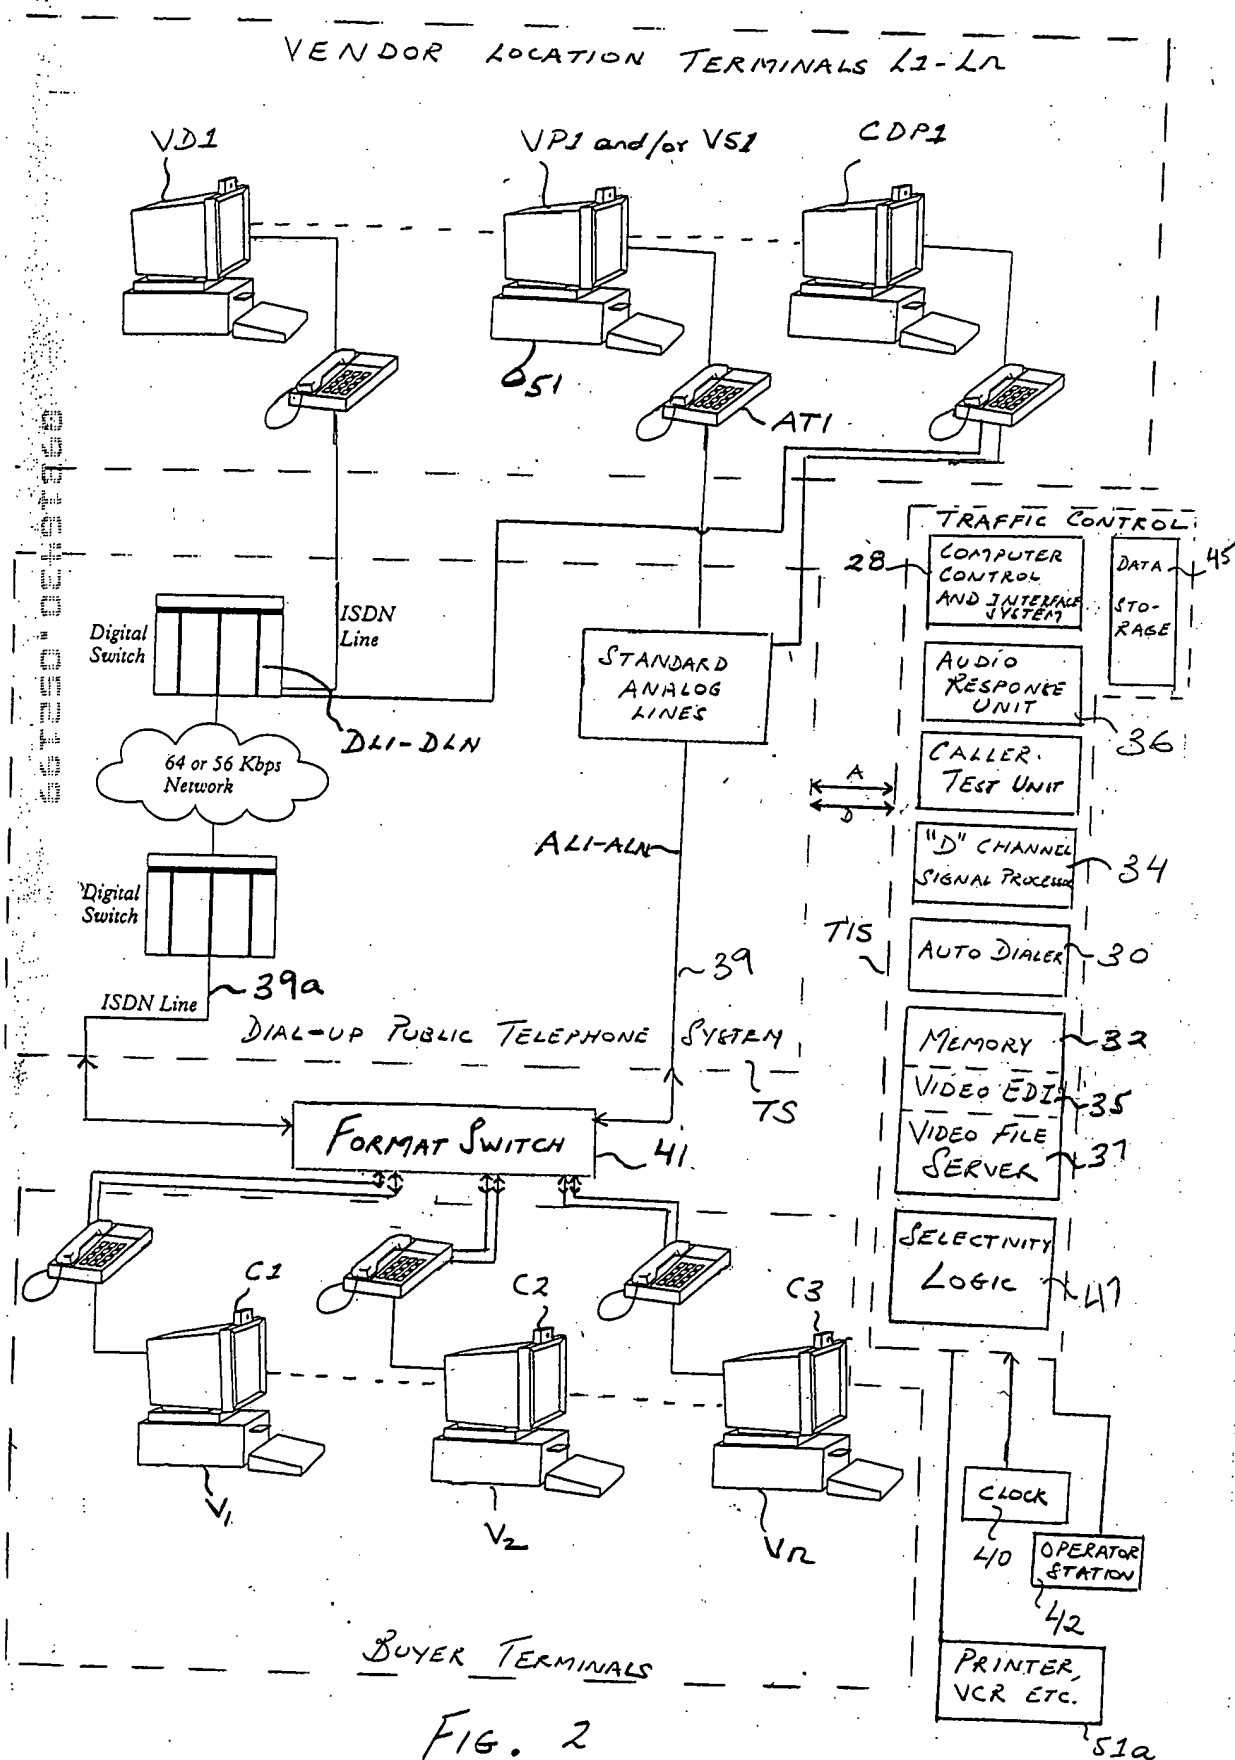 VENDOR LOCATION TERMINALS L1-Ln
VD1
VP1 and/or VS1
CDP1
51
AT1
TRAFFIC CONTROL
28
COMPUTER
CONTROL
AND INTERFACE
SYSTEM
DATA
STO-
RAGE
45
Digital
Switch
ISDN
Line
STANDARD
ANALOG
LINES
AUDIO
RESPONSE
UNIT
36
DL1-DLN
64 or 56 Kbps
Network
CALLER
TEST UNIT
A
D
AL1-ALN
"D" CHANNEL
SIGNAL PROCESSOR
34
Digital
Switch
TIS
AUTO DIALER
30
39
39a
ISDN Line
DIAL-UP PUBLIC TELEPHONE SYSTEM
TS
MEMORY
32
VIDEO EDI
35
VIDEO FILE
SERVER
37
FORMAT SWITCH
41
SELECTIVITY
LOGIC
47
C1
C2
C3
V1
V2
Vn
CLOCK
40
OPERATOR
STATION
42
BUYER TERMINALS
PRINTER,
VCR ETC.
51a
FIG. 2